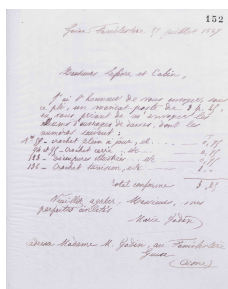 152
Guise Familistère 21 juillet 1897
Messieurs Lefèvre et Cabin,
J'ai l'honneur de vous envoyer sous
ce pli, un mandat-poste de 3 f. 25,
en vous priant de m'envoyer les
albums d'ouvrages de dames, dont les
numéros suivent :
crochet
crochet carré, etc
133 -
crochet tunisien, etc
Total conforme 3,25
Veuillez agréer, Messieurs, mes
parfaites civilités
Marie Godin
adresse Madame M. Godin, au Familistère
Guise
(Aisne)